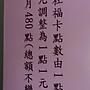 社福卡點數由一點
元調整為一點一元
月480點(總額不變